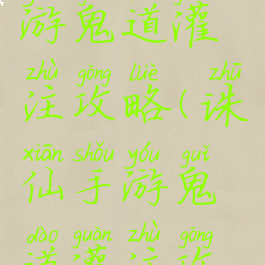 游鬼道灌
zhù gōng lüè zhū
注攻略(诛
xiān shǒu yóu guǐ
仙手游鬼
dào guàn zhù gōng
道灌注攻